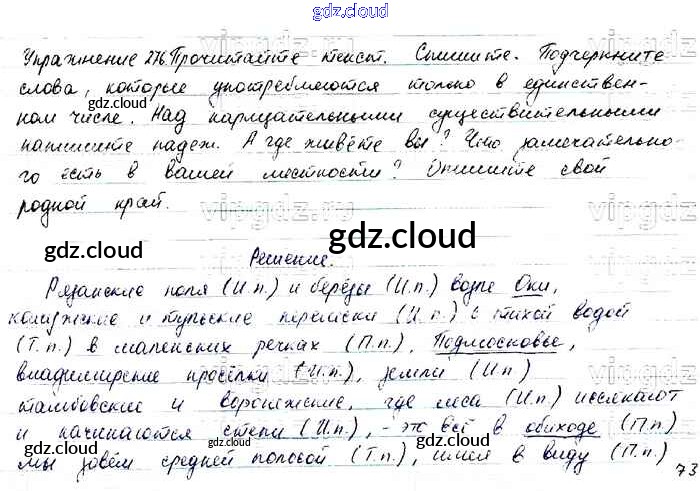 gdz.cloud
Упражнение 276. Прочитайте текст. Спишите. Подчеркните
слова, которые употребляются только в единствен-
ном числе. Над нарицательными существительными
напишите падеж. А где живёте вы? Что замечательно-
го есть в вашей местности? Опишите свой
родной край.
Решение.
Рязанские поля (И.п.) и берёзы (И.п.) возле Оки,
калужские и тульские перелески (И.п.) с тихой водой
(Т.п.) в маленьких речках (П.п.), Подмосковье,
владимирские просёлки (И.п.), земли (И.п)
тамбовские и воронежские, где леса (И.п) иссякают
и начинаются степи (И.п.), - это всё в обиходе (П.п)
мы зовём средней полосой (Т.п.), имея в виду (П.п)
73
gdz.cloud
gdz.cloud
gdz.cloud
gdz.cloud
gdz.cloud
gdz.cloud
gdz.cloud
gdz.cloud
vipgdz.ru
vipgdz.ru
vipgdz.ru